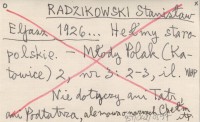 RADZIKOWSKI Stanisław
Eljasz 1926... Hełmy staro
polskie. — Młody Polak (Ka-
towice) 2, nr 3: 2-3, il. WAP
Nie dotyczy ani Tatr,
ani Podtatrza, ale